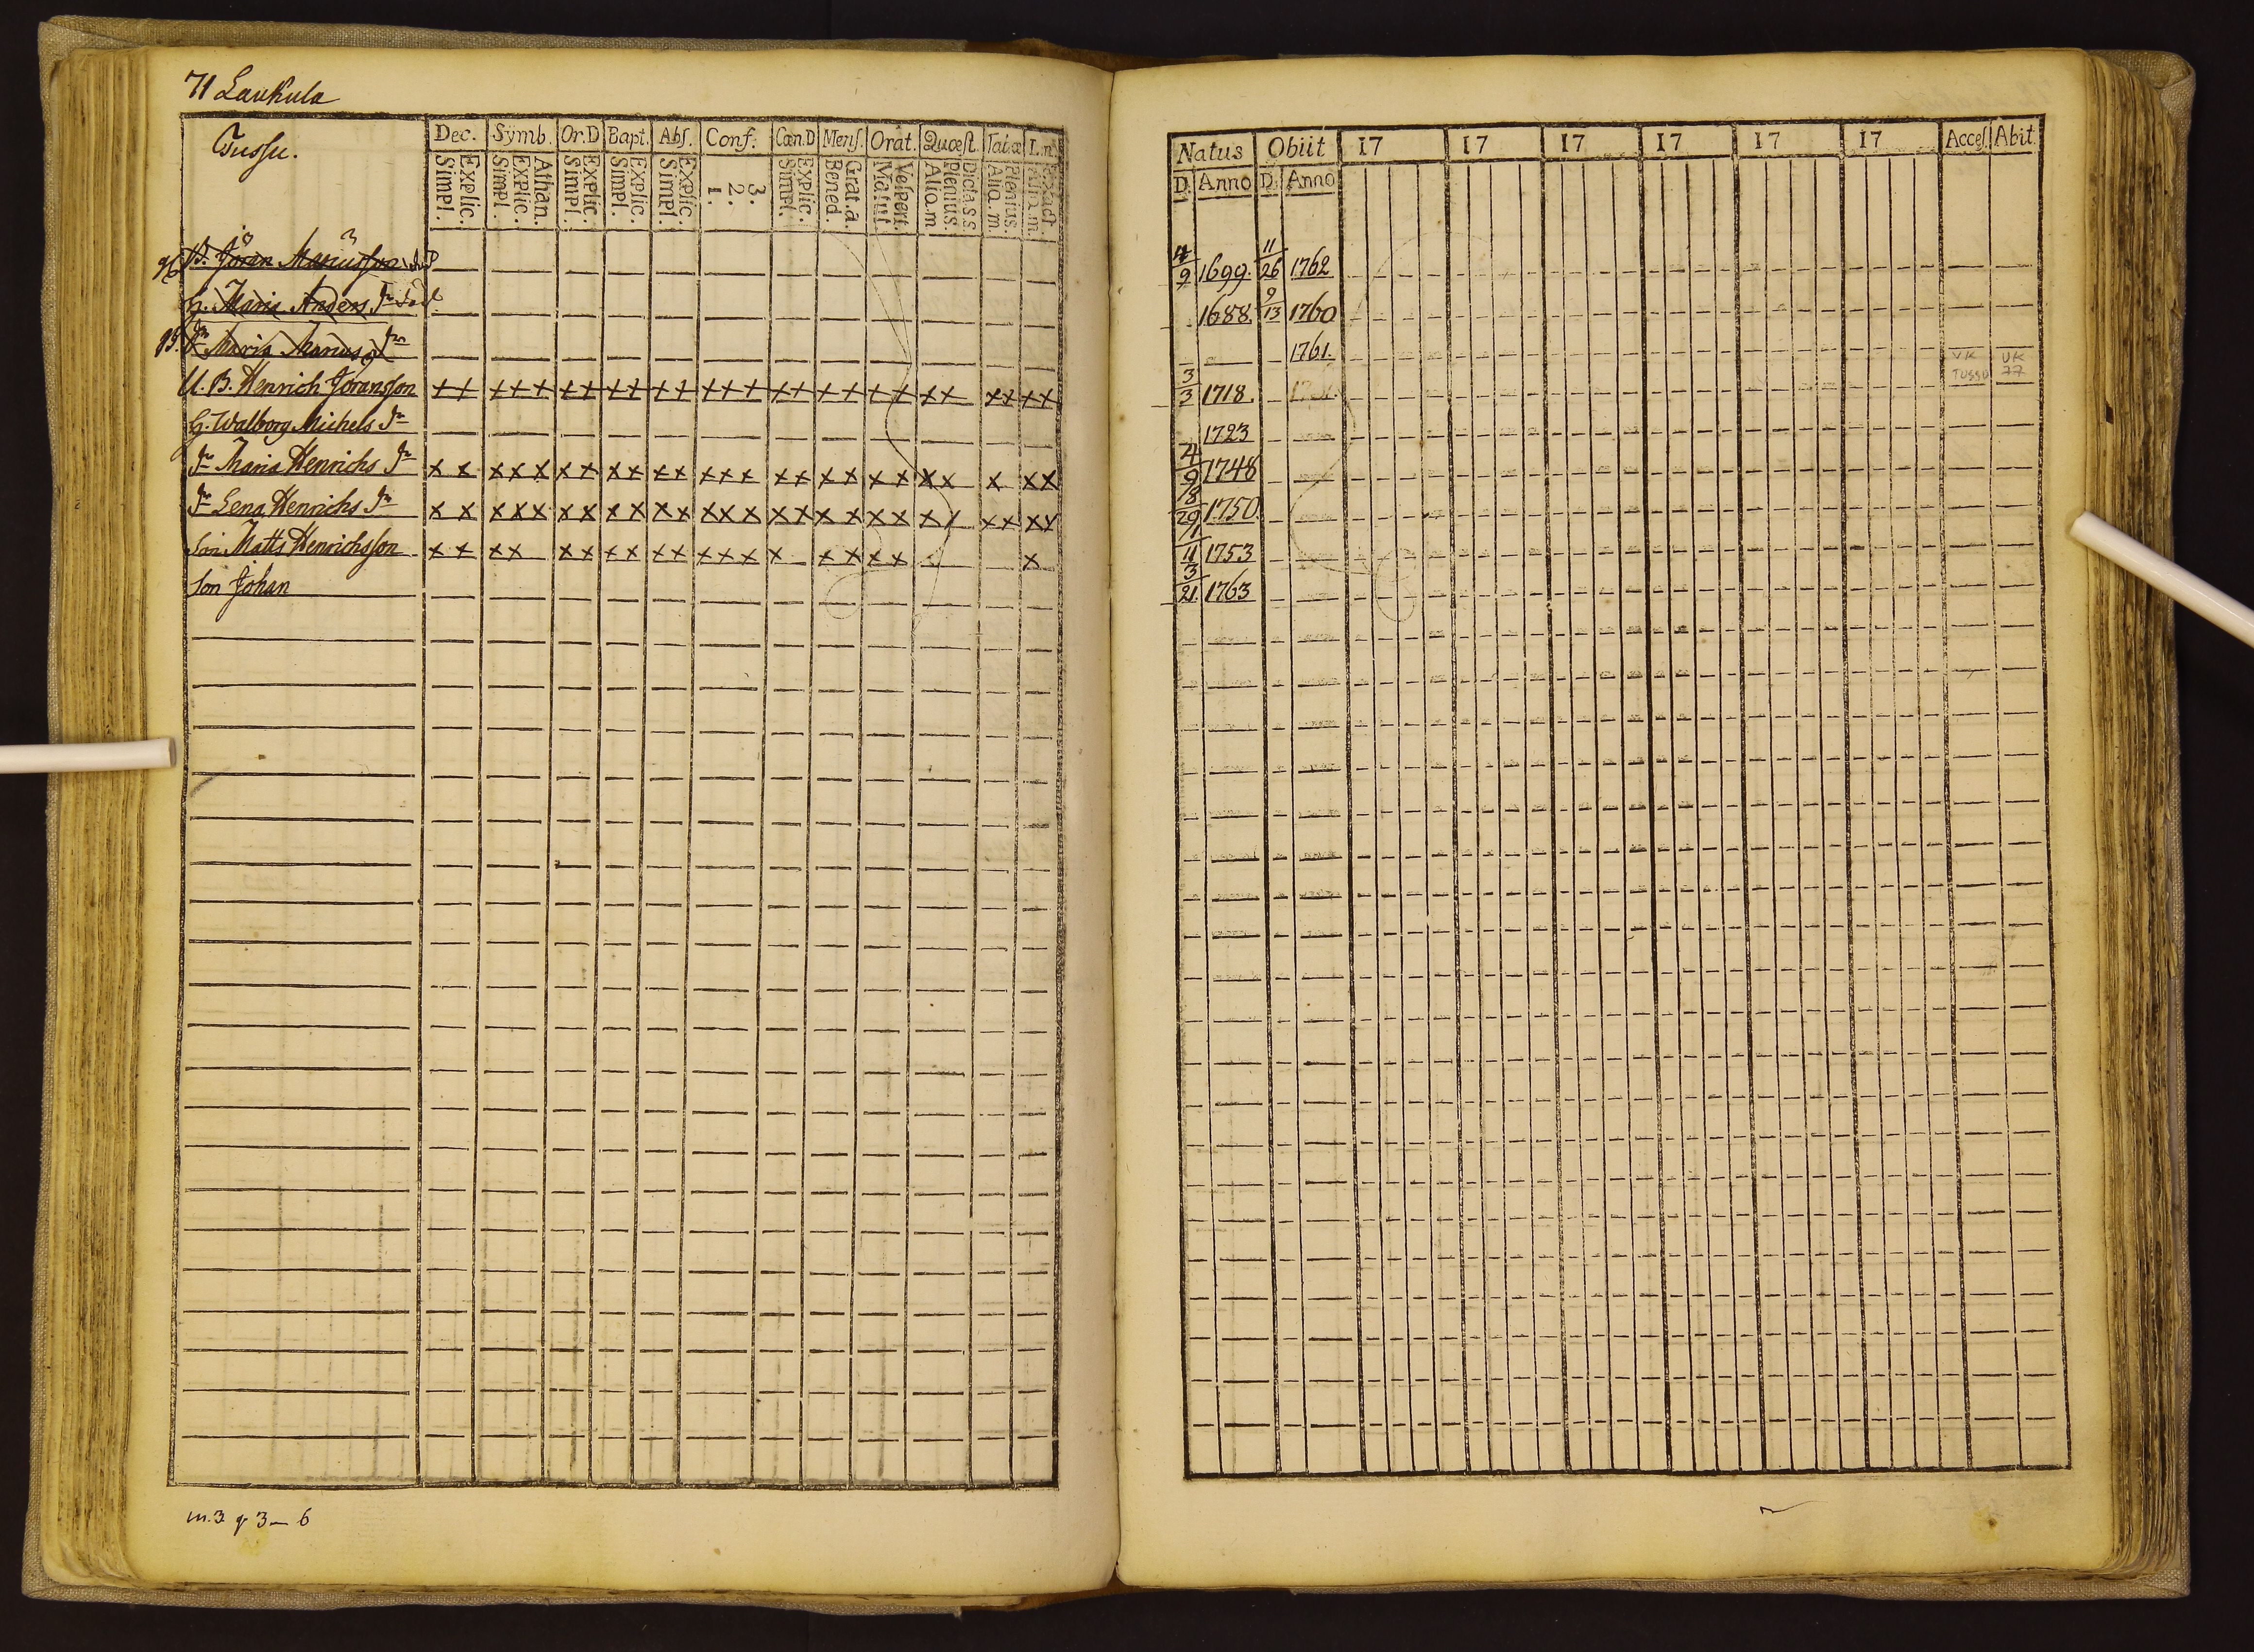 71 Laukula
Tussu.
Dec. Symb. Or.D Bapt. Abſ. Conf. Cœn.D Menſ. Orat. Quœſt.
Explic. Simpl. Athan. Explic. Simpl. Explic. Simpl. Explic. Simpl. Explic. Simpl. 3. 2. 1. Explic. Simpl. Grat.a. Bened. Veſpert. Matut. Dicta SS Plenius. Aliq.m. Plenius. Aliq.m. Exact. Aliq.m.
B. Jöran Mariusson död
H. Maria Anders dr död
dr Maria Marius dr
U. B. Henrich Joransson ++ +++ ++ ++ ++ +++ ++ ++ ++ ++ ++ ++
H. Walborg Michels dr
dr Maria Henrichs dr x x x x x x x x x x x x x x x x x x x x x x x x x
dr Lena Henrichs dr
Son Matts Henrichsson
Son Johan
m. 3 q 3 — 6
Natus Obiit 17 17 17 17 17 17 Acceſ. Abit.
D. Anno D. Anno
9 1699. 11/26 1762
1688. 9/13 1760
1761.
3/3 1718.
VK TUSSU UK 77
1723
4/9 1748
8/29 1750
11 1753
3/21 1763